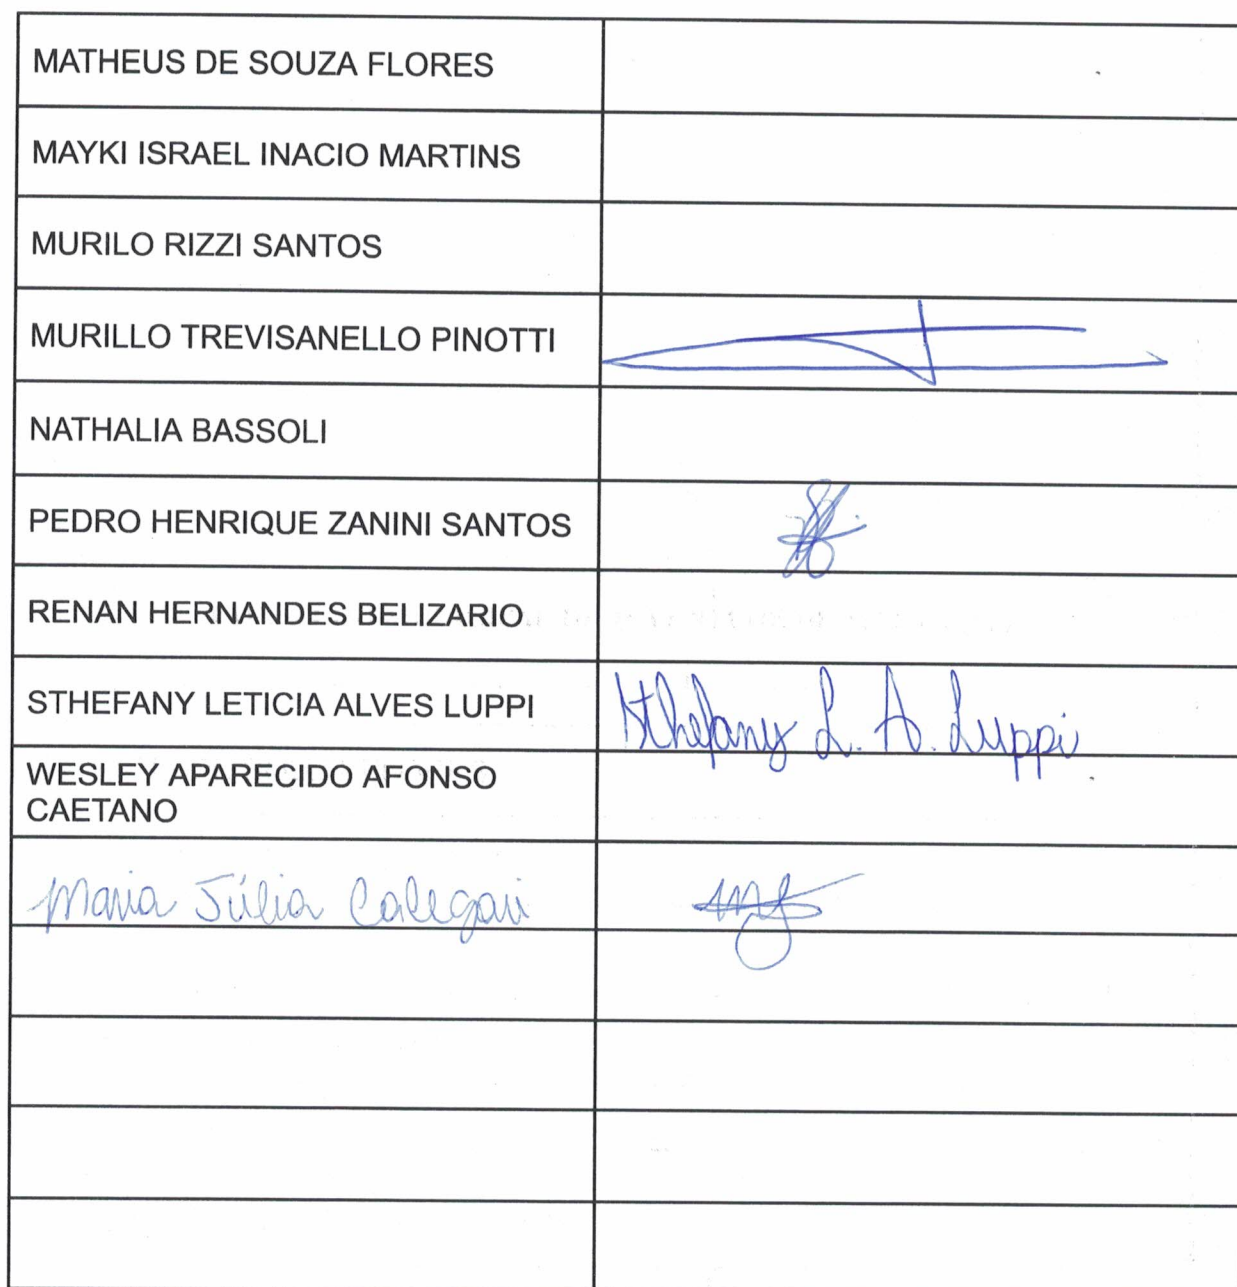 MATHEUS DE SOUZA FLORES
MAYKI ISRAEL INACIO MARTINS
MURILO RIZZI SANTOS
MURILLO TREVISANELLO PINOTTI
NATHALIA BASSOLI
PEDRO HENRIQUE ZANINI SANTOS
RENAN HERNANDES BELIZARIO
STHEFANY LETICIA ALVES LUPPI
Sthefany L. A. Luppi
WESLEY APARECIDO AFONSO
CAETANO
Maria Júlia Calegari